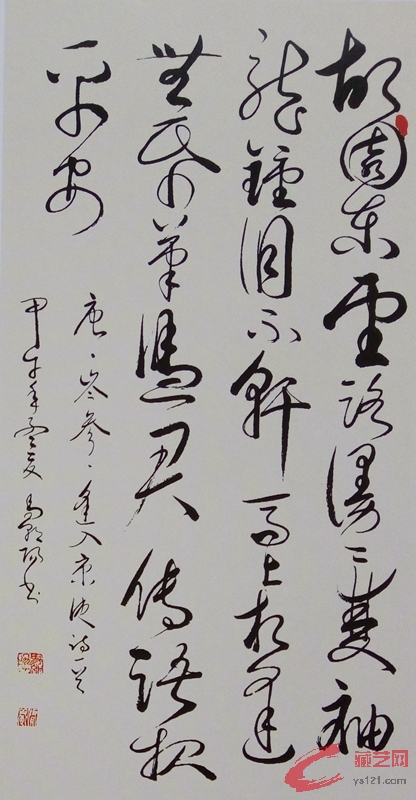 故園東望路漫〻雙袖
龍鐘泪不乾馬上相逢
無帋筆憑君傳語報
平安
唐、岑參、逢入京使詩一首
甲午年夏書
藏艺网
ys121.com